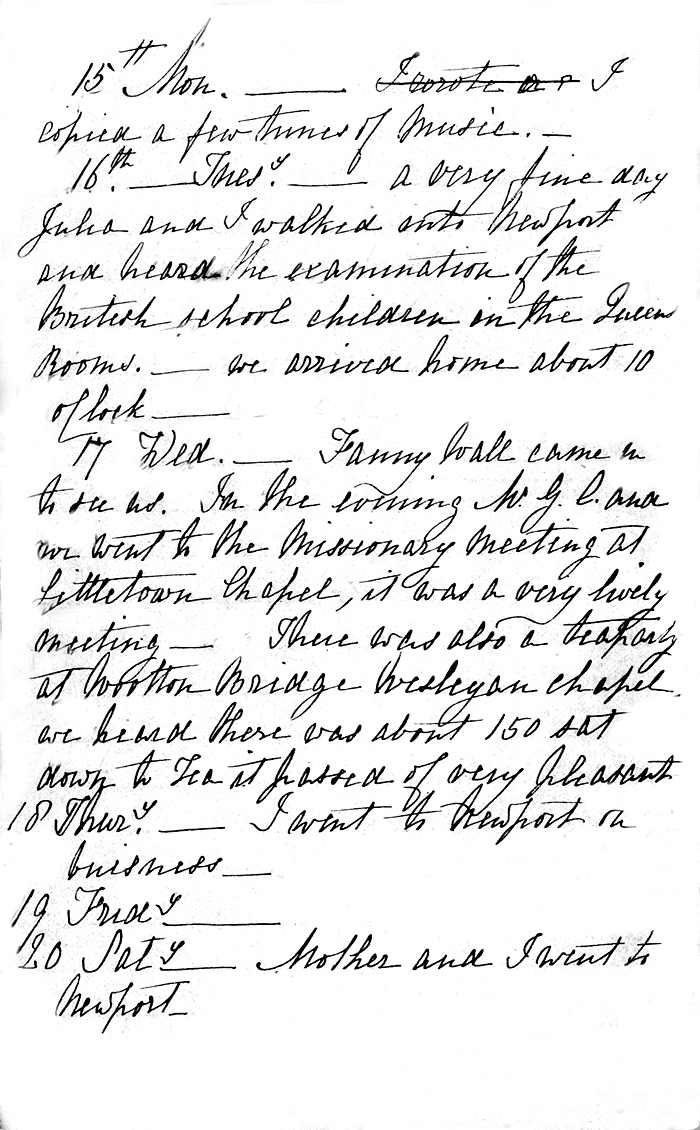 15th Mon. — I wrote a I
copied a few tunes of Music. —
16th. — Tuesy. — a very fine day
Julia and I walked into Newport
and heard the examination of the
British school children in the Queens
Rooms. — we arrived home about 10
oClock —
17 Wed. — Fanny Wall came in
to see us. In the evening Mr. G. C. and
we went to the Missionary Meeting at
Littletown Chapel, it was a very lively
meeting — There was also a teaparty
at Wootton Bridge Wesleyan chapel.
we heard there was about 150 sat
down to Tea it passed of very pleasant
18 Thury. — I went to Newport on
buisness —
19 Fridy —
20 Saty — Mother and I went to
Newport —